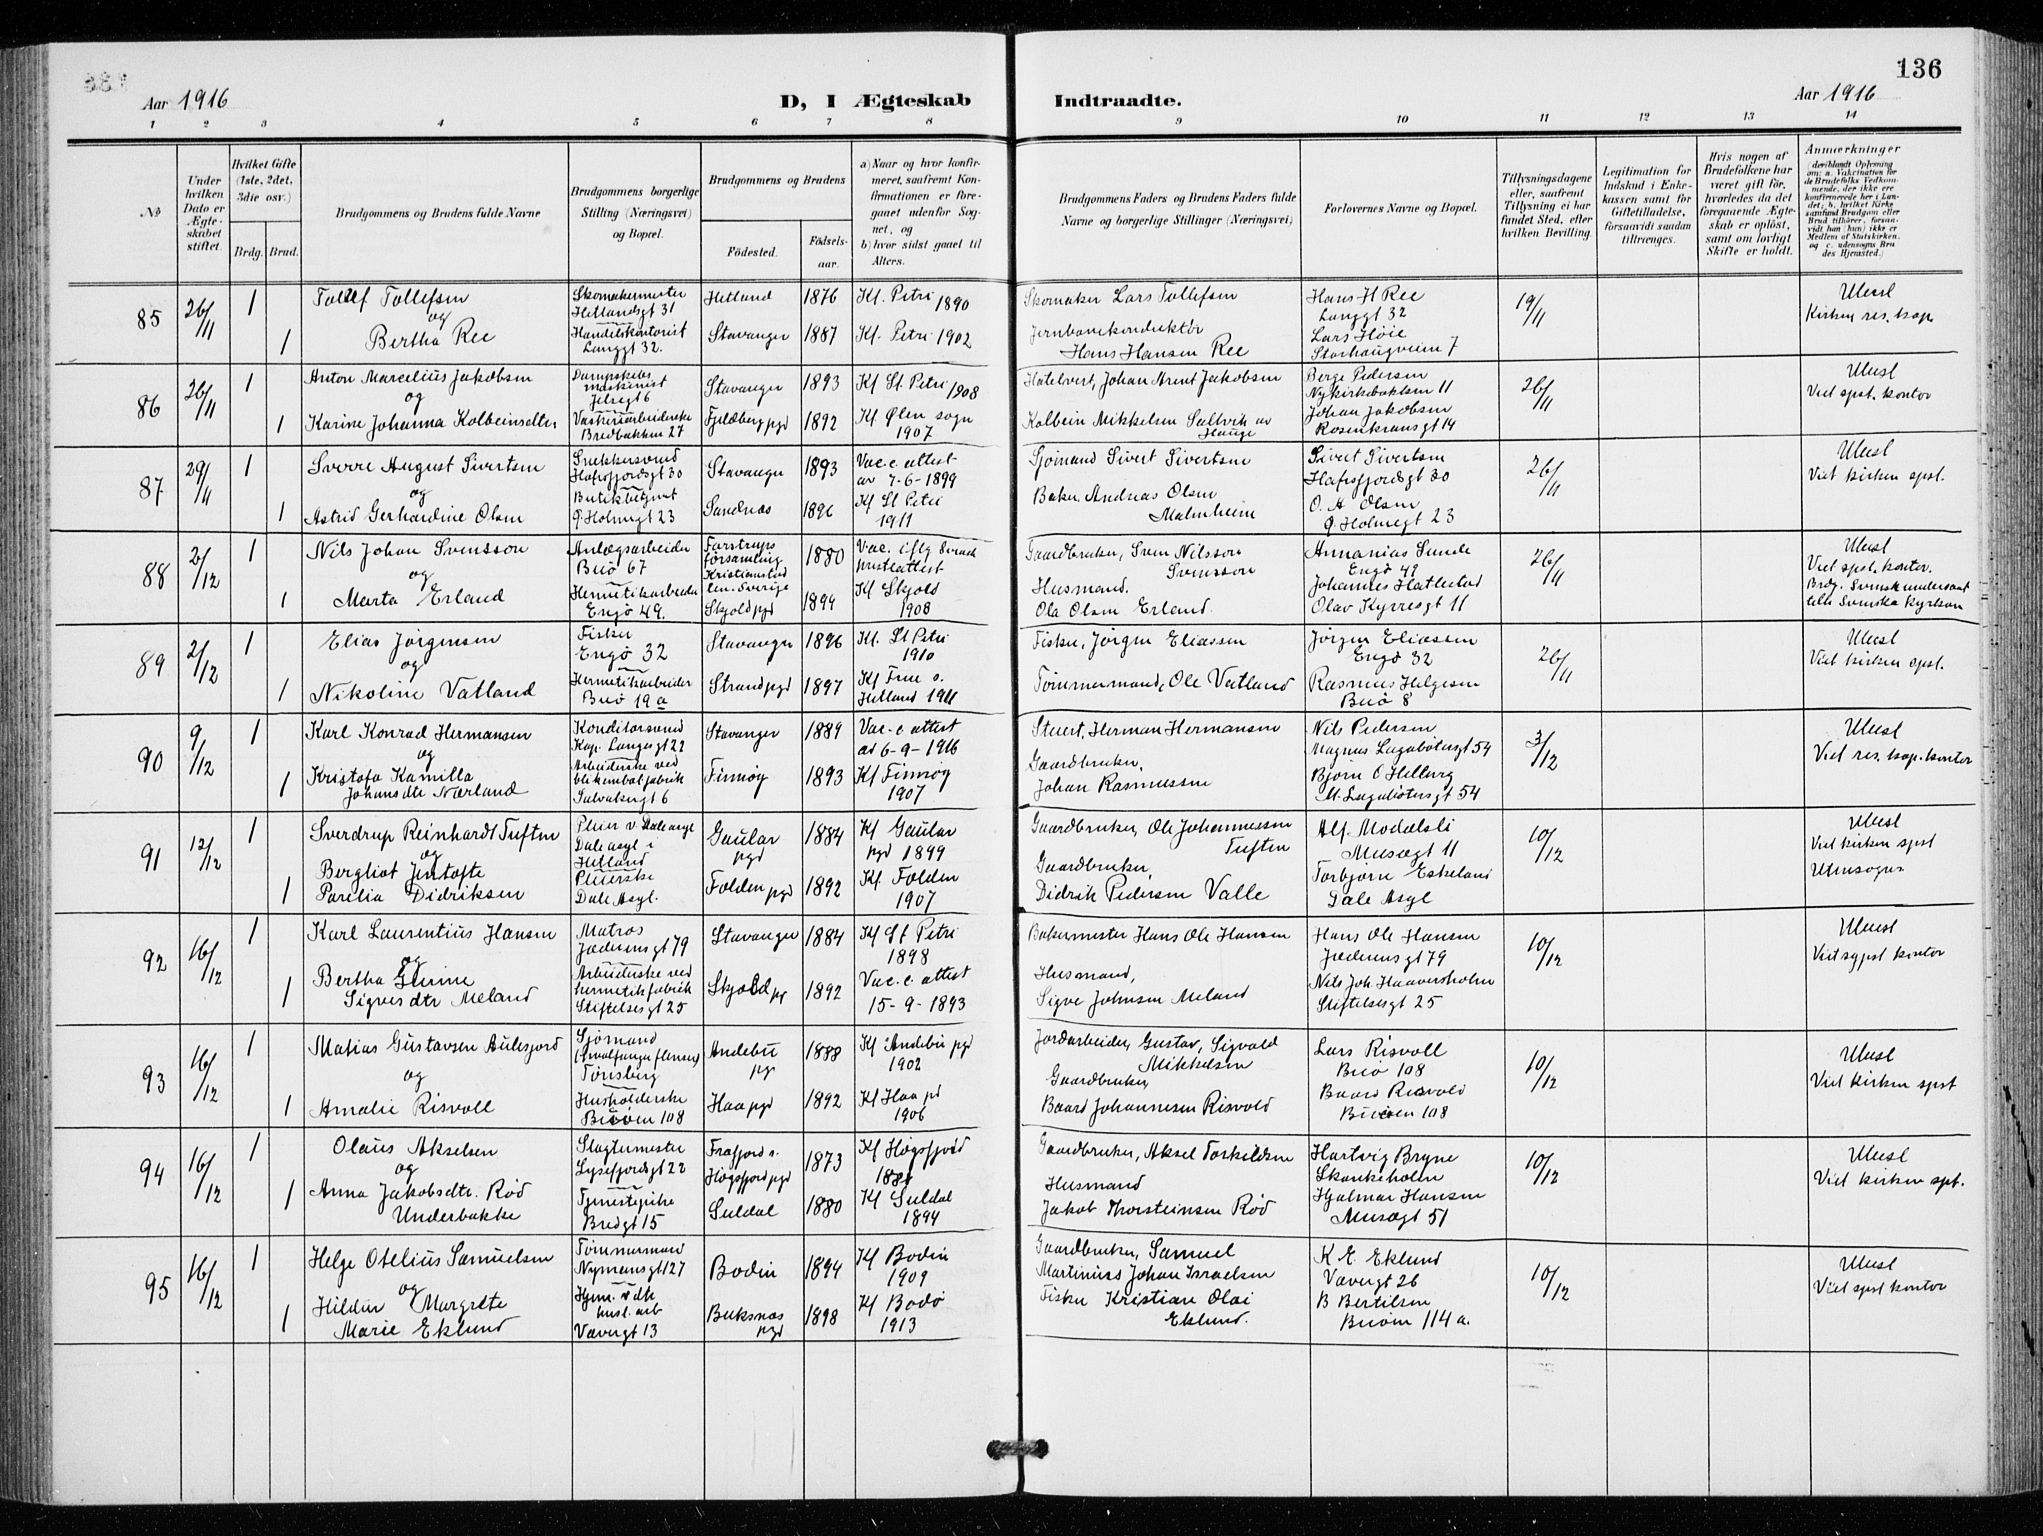 136
Aar 1916
D, I Ægteskab
Indtraadte.
Aar 1916
1 2 3 4 5 6 7 8 9 10 11 12 13 14
No
Under hvilken Dato er Ægteskabet stiftet.
Hvilket Gifte (1ste, 2det, 3die osv.)
Brdg. Brud.
Brudgommens og Brudens fulde Navne
Brudgommens borgerlige Stilling (Næringsvei) og Bopæl.
Brudgommens og Brudens
Fødested.
Fødselsaar.
a) Naar og hvor konfirmeret, saafremt Konfirmationen er foregaaet udenfor Sognet, og
b) hvor sidst gaaet til Alters.
Brudgommens Faders og Brudens Faders fulde Navne og borgerlige Stillinger (Næringsvei)
Forlovernes Navne og Bopæl.
Tillysningsdagene eller, saafremt Tillysning ei har fundet Sted, efter hvilken Bevilling.
Legitimation for Indskud i Enkekassen samt for Giftetilladelse, forsaavidt saadan tiltrænges.
Hvis nogen af Brudefolkene har været gift før, hvorledes da det foregaaende Ægteskab er opløst, samt om lovligt Skifte er holdt.
Anmærkninger
(deriblandt Oplysning om: a. Vakcination for de Brudefolks Vedkommende, der ikke ere konfirmerede her i Landet; b. hvilket Kirkesamfund Brudgom eller Brud tilhører, forsaavidt han (hun) ikke er Medlem af Statskirken, og c. udensogns Bruds Hjemsted.)
85
26/11
1
1
Tollef Tollefsen
og
Bertha Ree
Skomakermester
Hetlandsgt 31
Handelskontorist
Langgt 32.
Hetland 1876 Kf. Petri 1890
Stavanger 1887 Kf. Petri 1902
Skomaker Lars Tollefsen
Jernbanekonduktør
Hans Hansen Ree
Hans H Ree
Langgt 32
Lars Høie
Storhaugveien 7
19/11
Uteesl
Kirken res. kap.
86
26/11
1
1
Anton Marcelius Jakobsen
og
Karine Johanna Kolbeinsdtr
Dampskibs
maskinist
Jelsegt 6
Vaskeriarbeiderske
Bredbakken 27
Stavanger 1893 Kf St Petri 1908
Fjeldberg pgd 1892 Kf Ølen sogn
1907
Hotelvert, Johan Arent Jakobsen
Kolbein Mikkelsen Saltvik av
Hauge
Berge Pedersen
Nykirkebakken 11
Johan Jakobsen
Rosenkransgt 14
26/11
Viet spst. kontor
87
29/11
1
1
Sverre August Sivertsen
og
Astrid Gerhardine Olsen
Snekkersvend
Hafrsfjordsgt 30
Butikbetjent
G. Holmegt 23
Stavanger 1893 Vac. c. attest
av 7-6-1899
Sandnæs 1896 Kf St Petri
1911
Sjømand Sivert Sivertsen
Baker Andreas Olsen
Malmheim
Sivert Sivertsen
Hafrsfjordsgt 30
O. A Olsen
G. Holmegt 23
26/11
Viet kirken spst.
88
2/12
1
1
Nils Johan Svensson
og
Marta Erland
Anlægsarbeider
Buø 67
Hermetikarbeider
Engø 49.
Farstrups
församling
Kristianstad
len. Sverige 1880
Skjold pgd 1894
Vac. iflg Svensk
presteattest
Kf Skjold
1908
Gaardbruker, Sven Nilsson
Svensson
Husmand.
Ola Olsen Erland.
Ananias Sunde
Engø 49
Johannes Hatlestad
Olav Kyrresgt 11
26/11
Viet spst. kontor.
Brdg. Svensk undersaat
89
2/12
1
1
Elias Jørgensen
og
Nikoline Vatland
Fisker
Engø 32
Hermetikarbeider
Buø 19a
Stavanger 1896 Kf. St Petri
1910
Strand pgd 1897 Kf Frue s.
Hetland 1911
Fisker, Jørgen Eliassen
Tømmermand, Ole Vatland
Jørgen Eliassen
Engø 32
Rasmus Helgesen
Buø 8
26/11
Viet kirken spst.
90
9/12
1
1
Karl Konrad Hermansen
og
Kristofa Kamilla
Johansdtr Nærland
Konditorsvend
Kap. Langesgt 22
Arbeiderske ved
blikembal.fabrik
Stavanger 1889 Vac. c attest
av 6-9-1916
Finnøy 1893 Kf Finnøy
1907
Stuert, Herman Hermansen
Gaardbruker,
Johan Rasmussen
Nils Pedersen
Magnus Lagabøtersgt 54
Bjørn O Helberg
M. Lagabøtersgt 54
3/12
Viet res. kap. kontor
91
12/12
1
1
Sverdrup Reinhardt Tuften
og
Bergliot Jentofte
Parelia Didriksen
Pleier v. Dale asyl
Dale asyl i
Hetland
Pleierske
Dale Asyl.
Gaular
pgd 1884 Kf Gaular
pgd 1899
Folden pgd 1892 Kf. Folden
1907
Gaardbruker, Ole Johannessen
Tuften
Gaardbruker,
Didrik Pedersen Valle
Alf. Modalsli
Musægt 11
Torbjørn Eskeland
Dale Asyl
10/12
Viet kirken spst
Utensogns
92
16/12
1
1
Karl Laurentius Hansen
og
Bertha Gurine
Sigvesdtr Meland
Matros
Jæderensgt 79
Arbeiderske ved
hermetikfabrik
Stiftelsesgt 25
Stavanger 1884 Kf St Petri
1898
Skjold pgd 1892 Vac. c. attest
15-9-1893
Bakermester Hans Ole Hansen
Husmand,
Sigve Johnsen Meland
Hans Ole Hansen
Jæderensgt 79
Nils Joh Haaversholm
Stiftelsesgt 25
10/12
Viet spst kontor
93
16/12
1
1
Matias Gustavsen Aulesjord
og
Amalie Risvoll
Sjømand
Tønsberg
Husholderske
Buøen 108
Andebu
pgd 1888 Kf Andebu pgd
1902
Haa pgd 1892 Kf Haa pd
1906
Jordarbeider, Gustav, Sigvald
Mikkelsen
Gaardbruker,
Baard Johannesen Risvold
Lars Risvoll
Buø 108
Baard Risvold
Buøen 108
10/12
Viet kirken spst
94
16/12
1
1
Olaus Akselsen
og
Anna Jakobsdtr. Rød
Underbakke
Slagtermester
Lysefjordsgt 22
Tjenestepike
Bredgt 15
Frafjord s.
Høgsfjord pgd 1873 Kf Høgsfjord
Suldal 1880 Kf Suldal
1894
Gaardbruker, Aksel Torkildsen
Husmand
Jakob Thorsteinsen Rød
Hartvig Bryne
Skankeholm
Hjalmar Hansen
Musægt 51
10/12
Viet kirken spt.
95
16/12
1
1
Helge Otelius Samuelsen
og
Hildur Margrete
Marie Eklund
Tømmermand
Nymansgt 127
Hjem. v dk
husl. arb
Vævergt 13
Bodin 1894 Kf Bodin
1909
Buksnæs
pgd 1898 Kf Bodø
1913
Gaardbruker, Samuel
Martinius Johan Israelsen
Fisker Kristian Olai
Eklund.
K. E. Eklund
Vævergt 26
B Bertilsen
Buøen 114 a.
10/12
Viet spst kontor